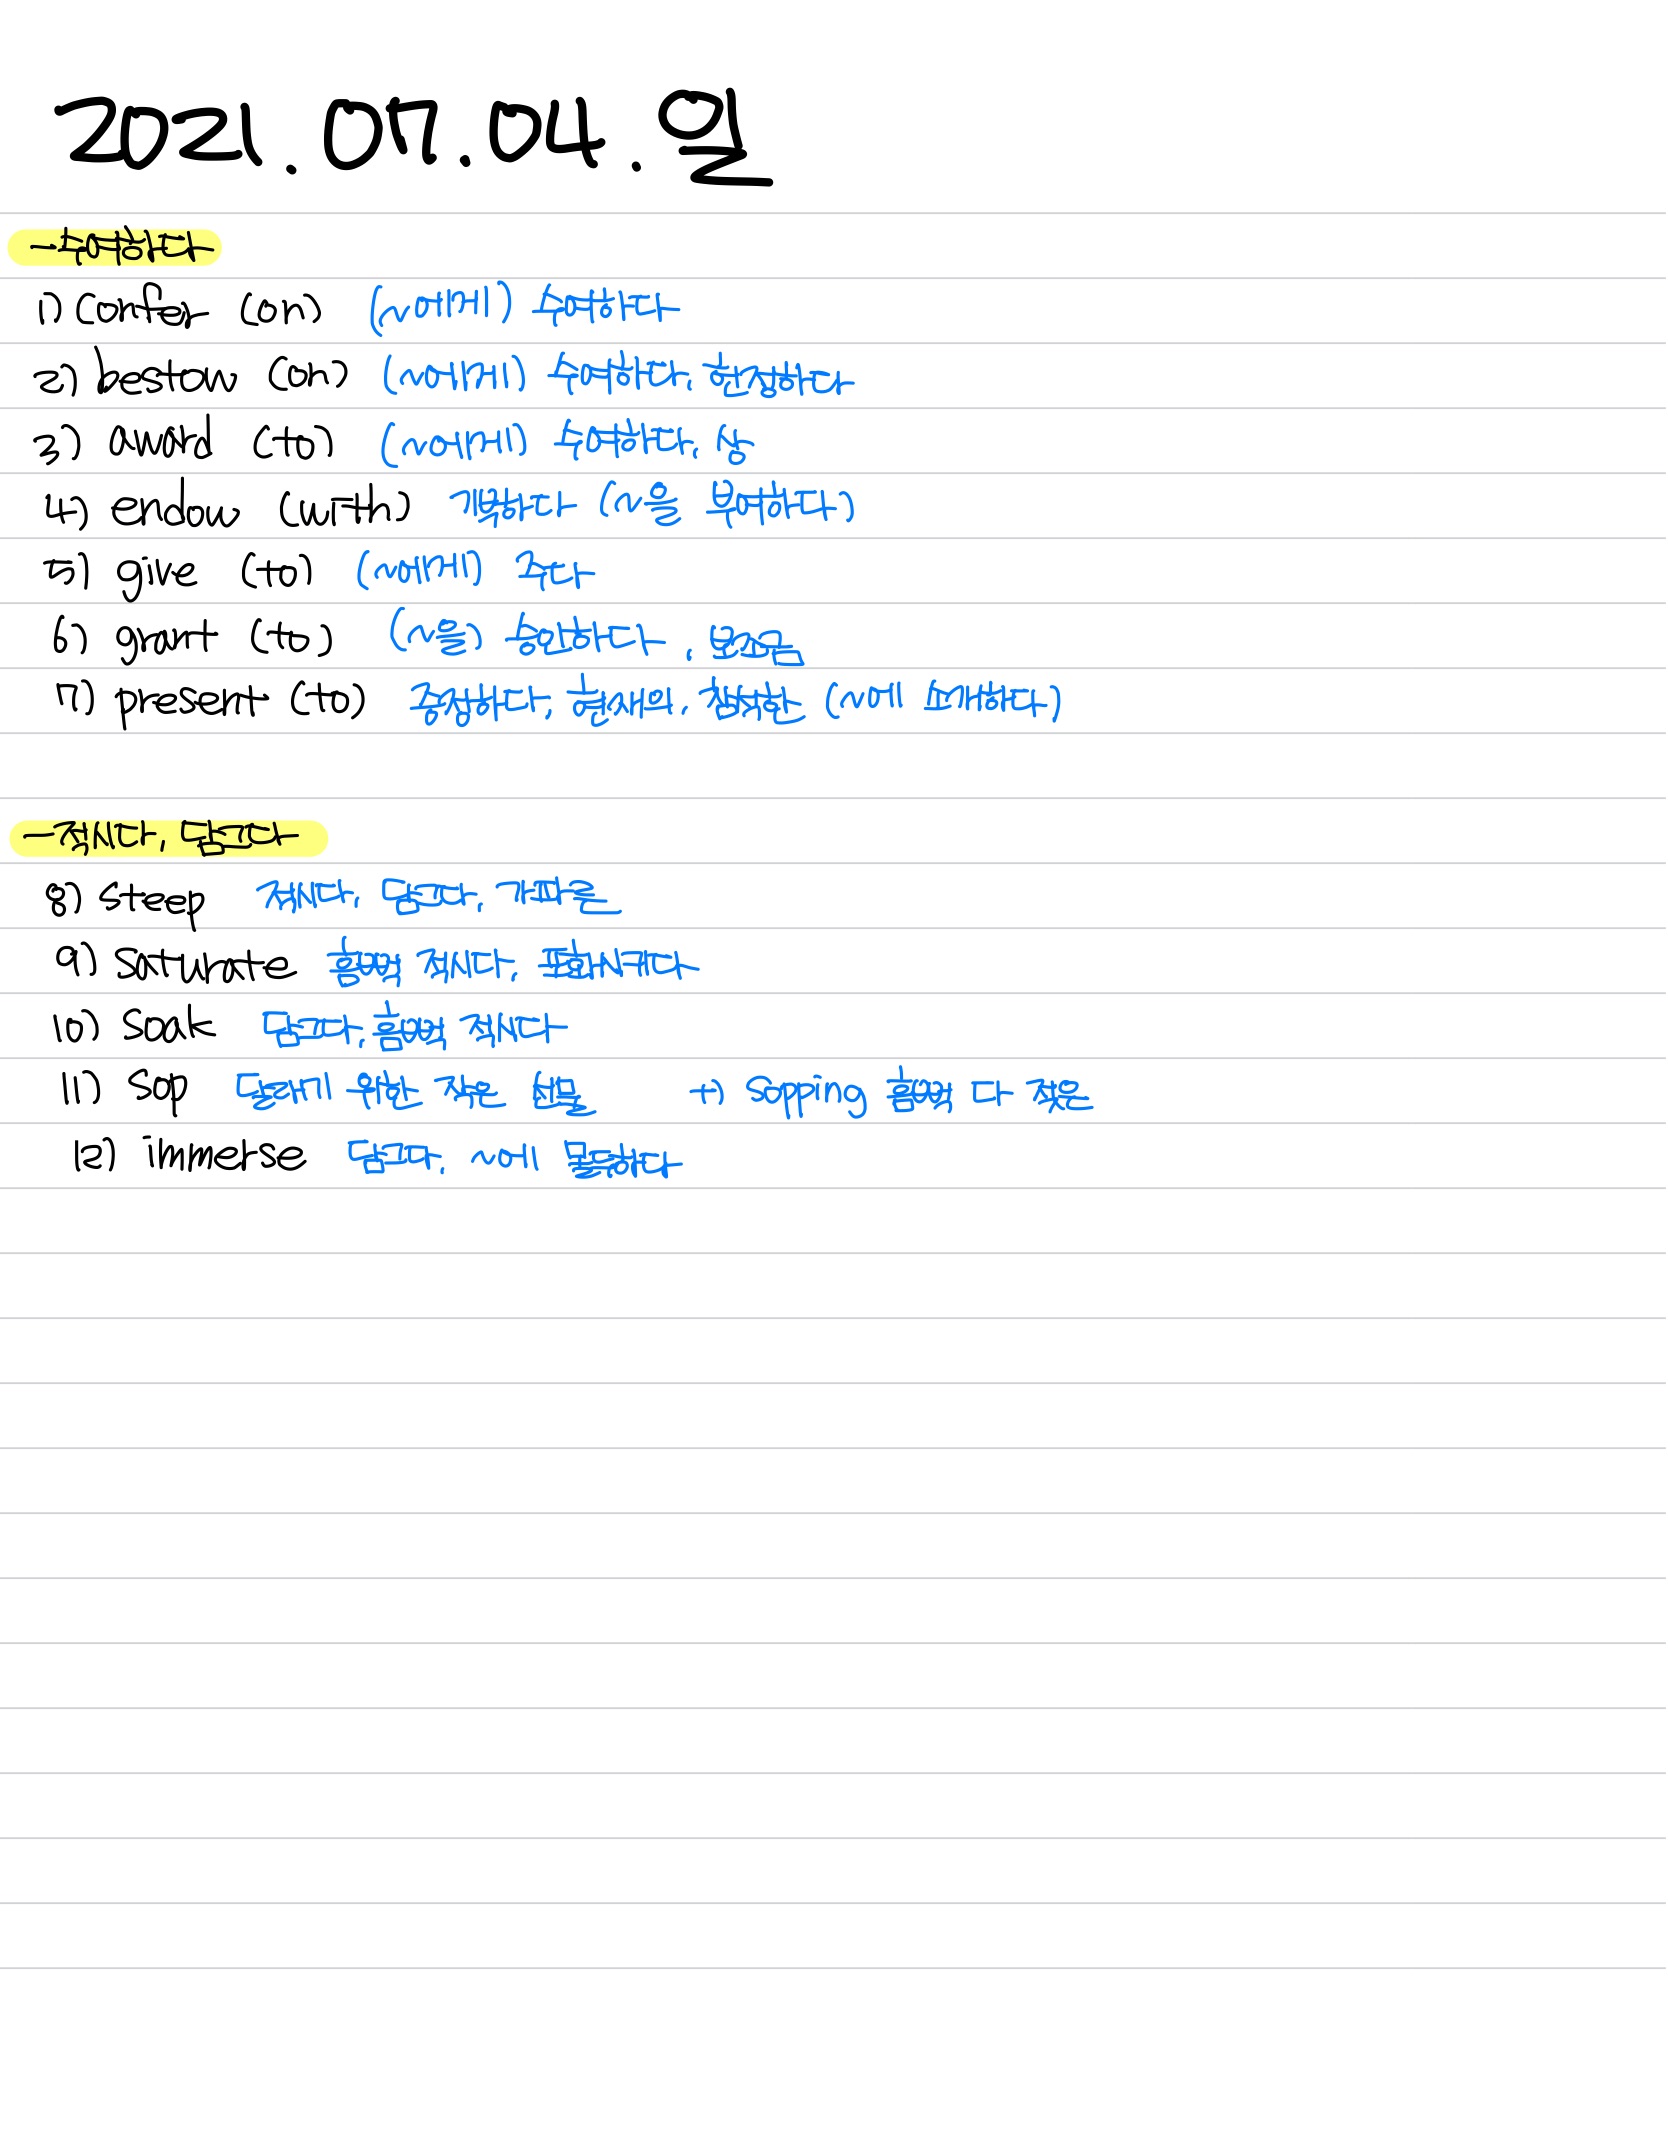 2021.07.04.일
-수여하다
1) confer (on) (~에게) 수여하다
2) bestow (on) (~에게) 수여하다, 헌정하다
3) award (to) (~에게) 수여하다, 상
4) endow (with) 기부하다 (~을 부여하다)
5) give (to) (~에게) 주다
6) grant (to) (~을) 승인하다, 보조금
7) present (to) 증정하다, 현재의, 참석한 (~에 소개하다)
-적시다, 담그다
8) steep 적시다, 담그다, 가파른
9) saturate 흠뻑 적시다, 포화시키다
10) soak 담그다, 흠뻑 적시다
11) sop 달래기 위한 작은 선물 +) sopping 흠뻑 다 젖은
12) immerse 담그다, ~에 몰두하다